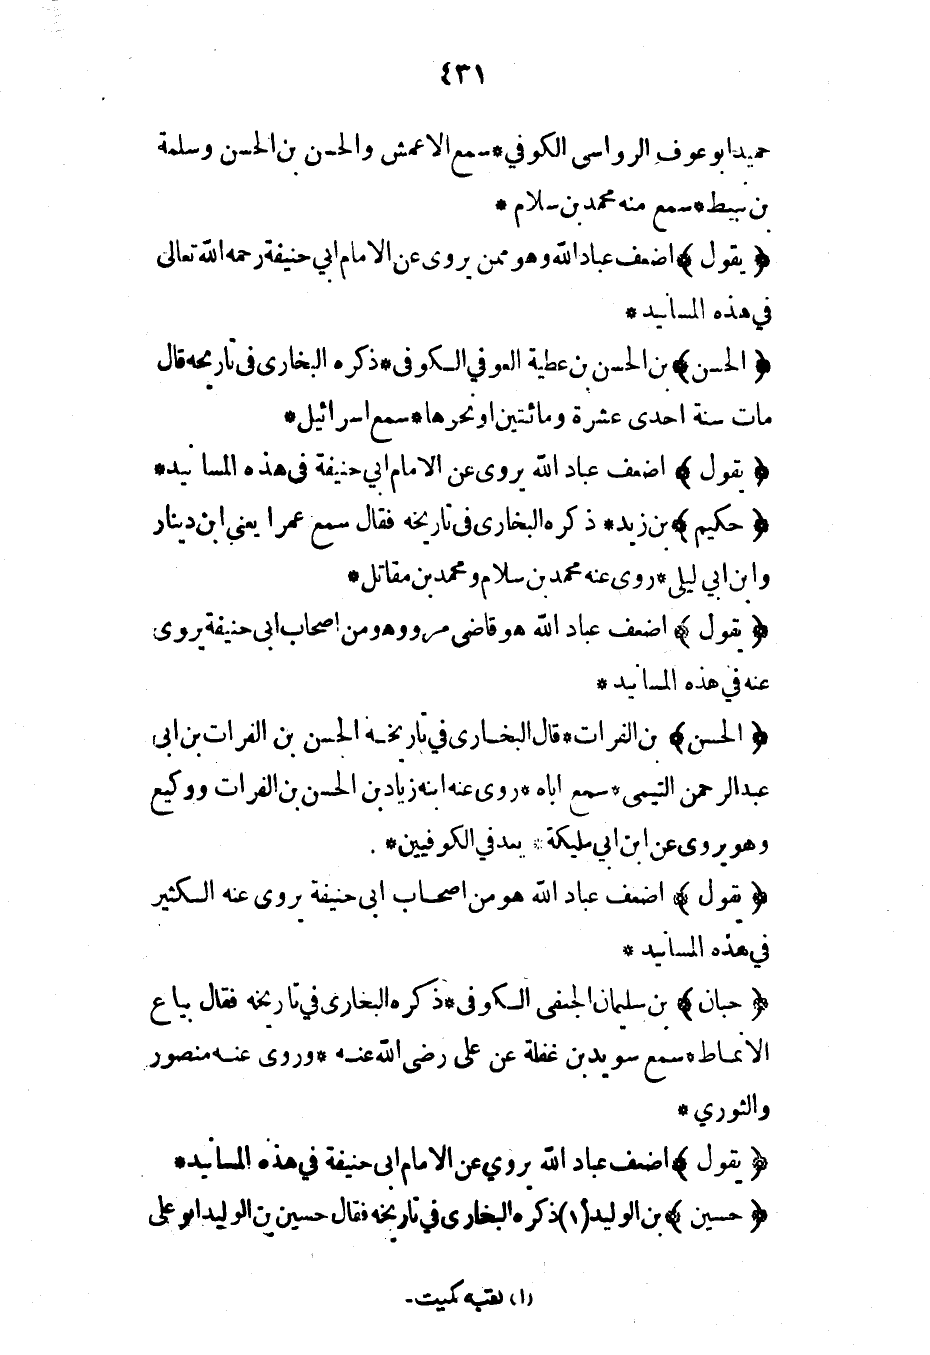 ٤٣١
حميد ابو عوف الرواسى الكوفي * سمع الاعمش والحسن بن الحسن وسلمة
بن نبيط * سمع منه محمد بن سلام *
﴿ يقول ﴾ اضعف عباد الله وهو ممن يروى عن الامام ابي حنيفة رحمه الله تعالى
في هذه المسانيد *
﴿ الحسن ﴾ بن الحسن بن عطية العوفي الكوفى * ذكره البخارى فى تاريخه قال
مات سنة احدى عشرة ومائتين او نحوها * سمع اسرائيل *
﴿ يقول ﴾ اضعف عباد الله يروى عن الامام ابي حنيفة فى هذه المسانيد *
﴿ حكيم ﴾ بن زيد * ذكره البخارى فى تاريخه فقال سمع عمرا يعني ابن دينار
وابن ابي ليلى * روى عنه محمد بن سلام ومحمد بن مقاتل *
﴿ يقول ﴾ اضعف عباد الله هو قاضى مرو وهو من اصحاب ابى حنيفة يروى
عنه في هذه المسانيد *
﴿ الحسن ﴾ بن الفرات * قال البخارى في تاريخه الحسن بن الفرات بن ابى
عبد الرحمن التيمى * سمع اباه * روى عنه ابنه زياد بن الحسن بن الفرات ووكيع
وهو يروى عن ابن ابي مليكة * يعد في الكوفيين * .
﴿ يقول ﴾ اضعف عباد الله هو من اصحاب ابى حنيفة يروى عنه الكثير
في هذه المسانيد *
﴿ حبان ﴾ بن سليمان الجعفى الكوفى * ذكره البخارى في تاريخه فقال بياع
الانماط * سمع سويد بن غفلة عن على رضى الله عنه * وروى عنه منصور
والثوري *
﴿ يقول ﴾ اضعف عباد الله يروي عن الامام ابى حنيفة في هذه المسانيد *
﴿ حسين ﴾ بن الوليد (١) ذكره البخارى في تاريخه فقال حسين بن الوليد ابو على
(١) لقبه كميت -